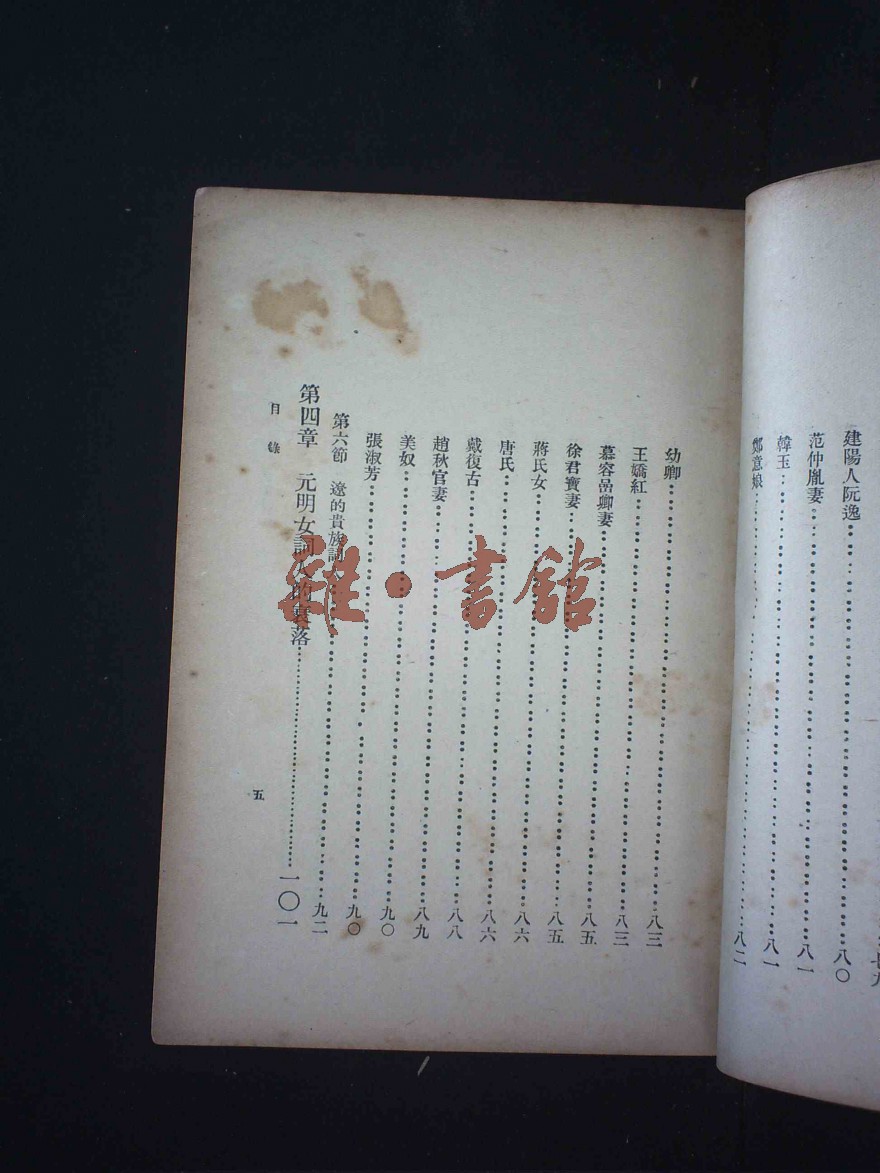 七九
建陽人阮逸……八〇
范仲胤妻……八一
韓玉……八一
鄭意娘……八二
幼卿……八三
王嬌紅……八三
慕容嵒卿妻……八五
徐君寶妻……八五
蔣氏女……八六
唐氏……八六
戴復古……八八
趙秋官妻……八九
美奴……九〇
張淑芳……九〇
第六節 遼的貴族詞人……九二
第四章 元明女詞人的衰落……一〇一
目錄
五
雜·書館